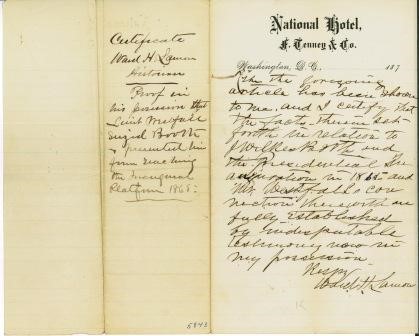 Certificate
Ward H. Lamon
Historian
Proof in
his possession that
Lieut Westfall
seized Booth
prevented him
from reaching
the Inaugural
Platform 1865-
5843
National Hotel,
F. Tenney & Co.
Washington, D.C. 187
the foregoing
article has been shown
to me, and I certify that
the facts therein set
forth in relation to
J Wilkes Booth and
the Presidential In-
auguration in 1865 and
Mr Westfall's con
nection therewith are
fully established
by indisputable
testimony now in
my possession
Respy
Ward H Lamon